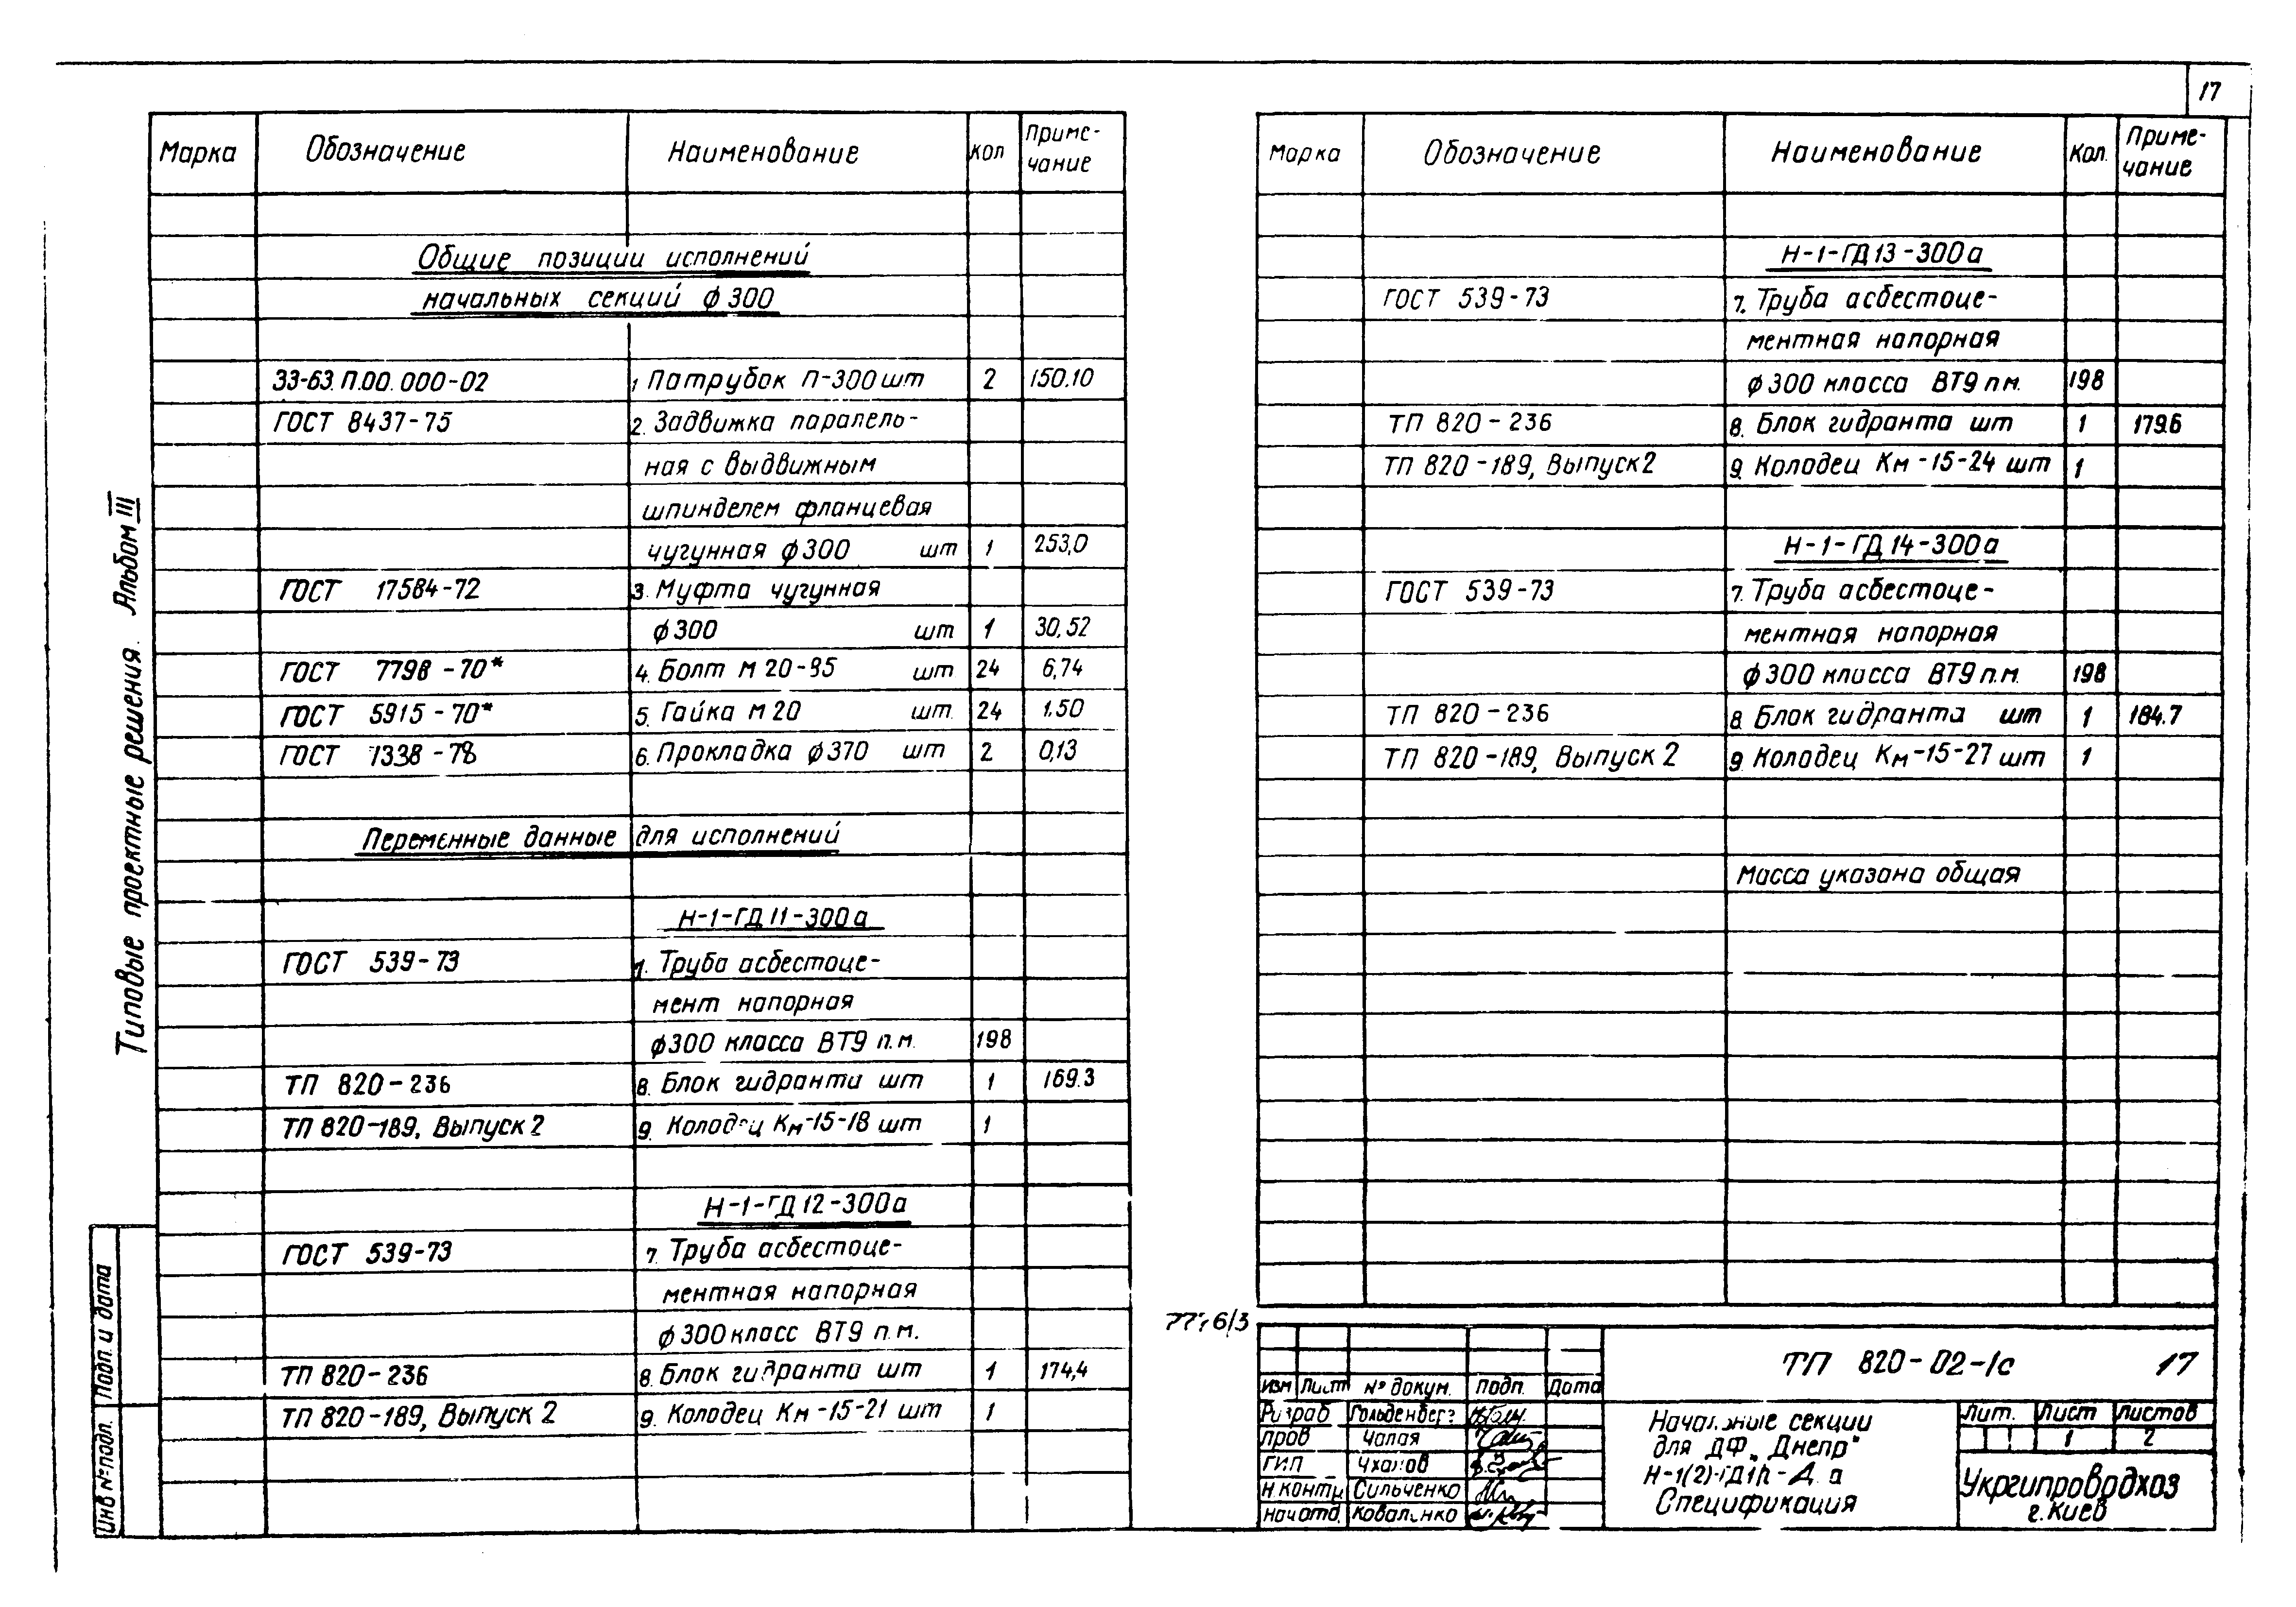 17
Типовые проектные решения. Альбом III
Марка Обозначение Наименование Кол Приме-
чание
Общие позиции исполнений
начальных секций ф 300
33-63.П.00.000-02 1 Патрубок П-300 шт 2 150.10
ГОСТ 8437-75 2. Задвижка паралель-
ная с выдвижным
шпинделем фланцевая
чугунная ф 300 шт 1 253,0
ГОСТ 17584-72 3. Муфта чугунная
ф 300 шт 1 30,52
ГОСТ 7798-70* 4. Болт М 20- шт 24 6,74
ГОСТ 5915-70* 5. Гайка М 20 шт. 24 1.50
ГОСТ 1338-78 6. Прокладка ф 370 шт 2 0,13
Переменные данные для исполнений
Н-1-ГД 11-300а
ГОСТ 539-73 Труба асбестоце-
мент напорная
ф300 класса ВТ9 п.м. 198
ТП 820-236 8. Блок гидранта шт 1 169.3
ТП 820-189, Выпуск 2 9. Колодец Км-15-18 шт 1
Н-1-ГД 12-300а
ГОСТ 539-73 7. Труба асбестоце-
ментная напорная
ф 300 класс ВТ9 п.м.
ТП 820-236 8. Блок гидранта шт 1 174,4
ТП 820-189, Выпуск 2 9. Колодец Км-15-21 шт 1
Марка Обозначение Наименование Кол. Приме-
чание
Н-1-ГД 13-300а
ГОСТ 539-73 7. Труба асбестоце-
ментная напорная
ф 300 класса ВТ9 п.м. 198
ТП 820-236 8. Блок гидранта шт 1 179.6
ТП 820-189, Выпуск 2 9. Колодец Км-15-24 шт 1
Н-1-ГД 14-300а
ГОСТ 539-73 7. Труба асбестоце-
ментная напорная
ф 300 класса ВТ9 п.м. 198
ТП 820-236 8. Блок гидранта шт 1 184.7
ТП 820-189, Выпуск 2 9. Колодец Км-15-27 шт 1
Масса указана общая
ТП 820-02-1с 17
Изм Лист № докун. Подп. Дата
Разраб Гольденберг
Пров Чалая
ГИП
Н.контр Сильченко
Нач отд. Коваленко
Начальные секции
для ДФ „Днепр"
Спецификация
Лит. Лист Листов
1 2
Укргипроводхоз
г. Киев
Подп. и дата
Инв № подл.